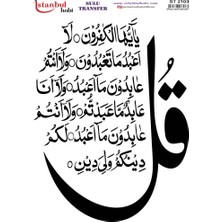 istanbul
hobi
SULU
TRANSFER
ST 2103
قُلْ
يَا أَيُّهَا الْكَافِرُونَ لَا
أَعْبُدُ مَا تَعْبُدُونَ وَلَا أَنْتُمْ
عَابِدُونَ مَا أَعْبُدُ وَلَا أَنَا
عَابِدٌ مَا عَبَدْتُمْ وَلَا أَنْتُمْ
عَابِدُونَ مَا أَعْبُدُ لَكُمْ
دِينُكُمْ وَلِيَ دِينِ